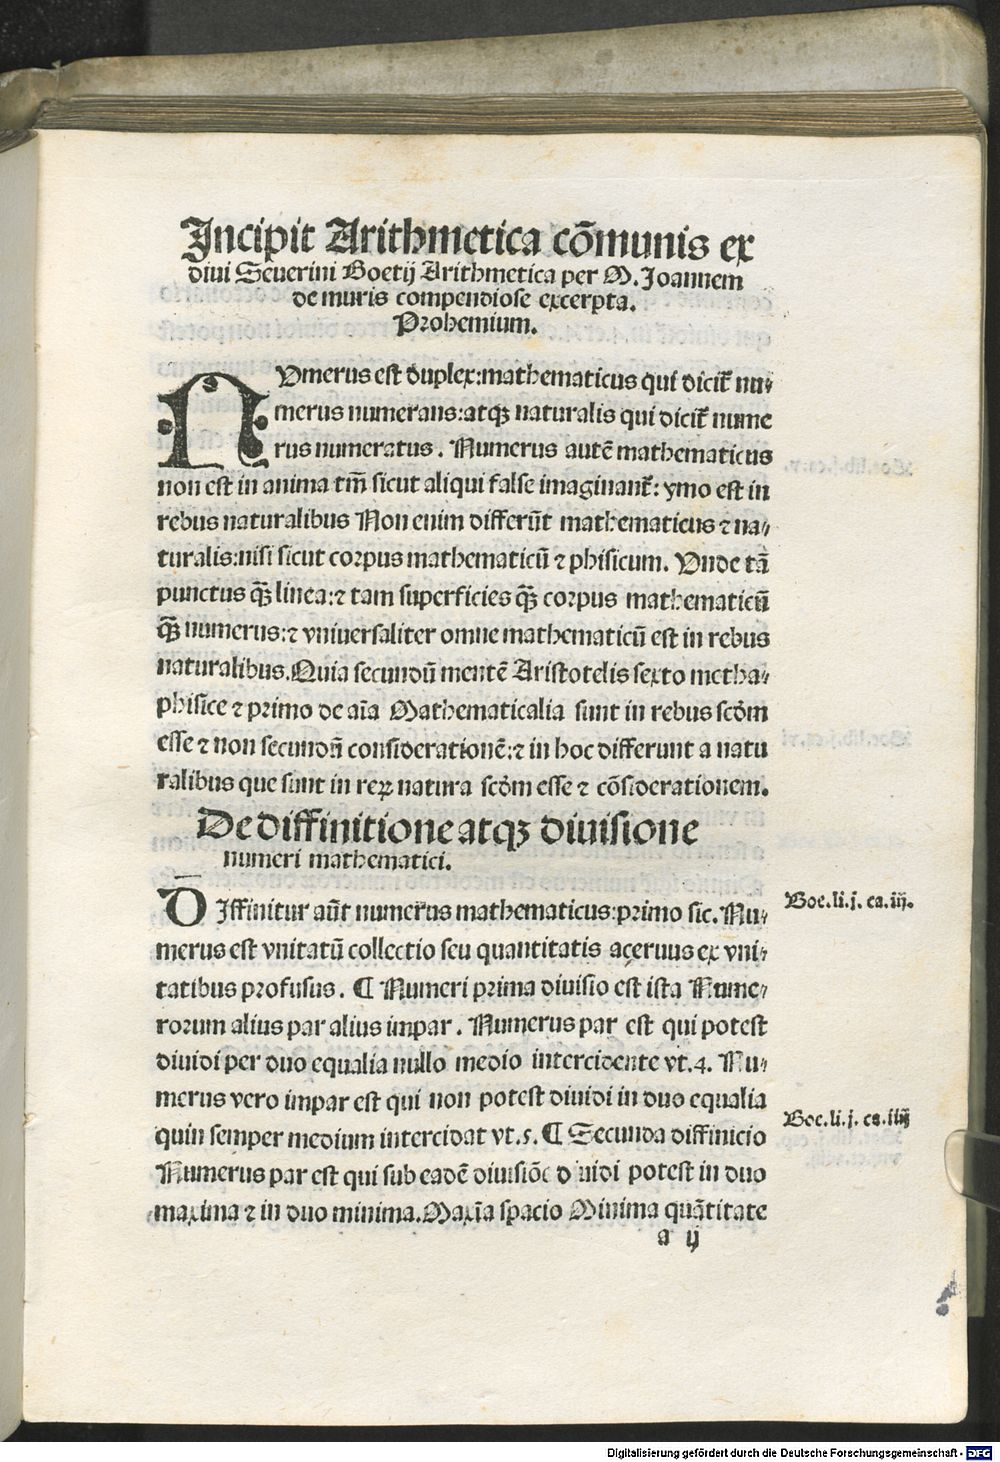 Incipit Arithmetica cõmunis ex
diui Seuerini Boetij Arithmetica per M. Joannem
de muris compendiose excerpta.
Prohemium.
NVmerus est duplex: mathematicus qui dicit̃ nu-
merus numerans: atqꝫ naturalis qui dicit̃ nume
rus numeratus. Numerus autẽ mathematicus
non est in anima tm̃ sicut aliqui false imaginant̃: ymo est in
rebus naturalibus Non enim differũt mathematicus ⁊ na-
turalis: nisi sicut corpus mathematicũ ⁊ phisicum. Vnde tã
punctus qꝫ̃ linea: ⁊ tam superficies qꝫ̃ corpus mathematicũ
qꝫ̃ numerus: ⁊ vniuersaliter omne mathematicũ est in rebus
naturalibus. Quia secundũ mentẽ Aristotelis sexto metha-
phisice ⁊ primo de aĩa Mathematicalia sunt in rebus scd̃m
esse ⁊ non secundũ considerationẽ: ⁊ in hoc differunt a natu
ralibus que sunt in reꝝ natura scd̃m esse ⁊ cõsiderationem.
De diffinitione atqꝫ diuisione
numeri mathematici.
DIffinitur aũt numerus mathematicus: primo sic. Nu-
merus est vnitatũ collectio seu quantitatis aceruus ex vni-
tatibus profusus. ¶ Numeri prima diuisio est ista Nume-
rorum alius par alius impar. Numerus par est qui potest
diuidi per duo equalia nullo medio intercidente vt .4. Nu-
merus vero impar est qui non potest diuidi in duo equalia
quin semper medium intercidat vt .5. ¶ Secunda diffinicio
Numerus par est qui sub eadẽ diuisiõe diuidi potest in duo
maxima ⁊ in duo minima. Maxĩa spacio Minima quãtitate
a ij
Boe. li. j. ca. iij.
Boe. li. j. ca. iiij
Digitalisierung gefördert durch die Deutsche Forschungsgemeinschaft - DFG